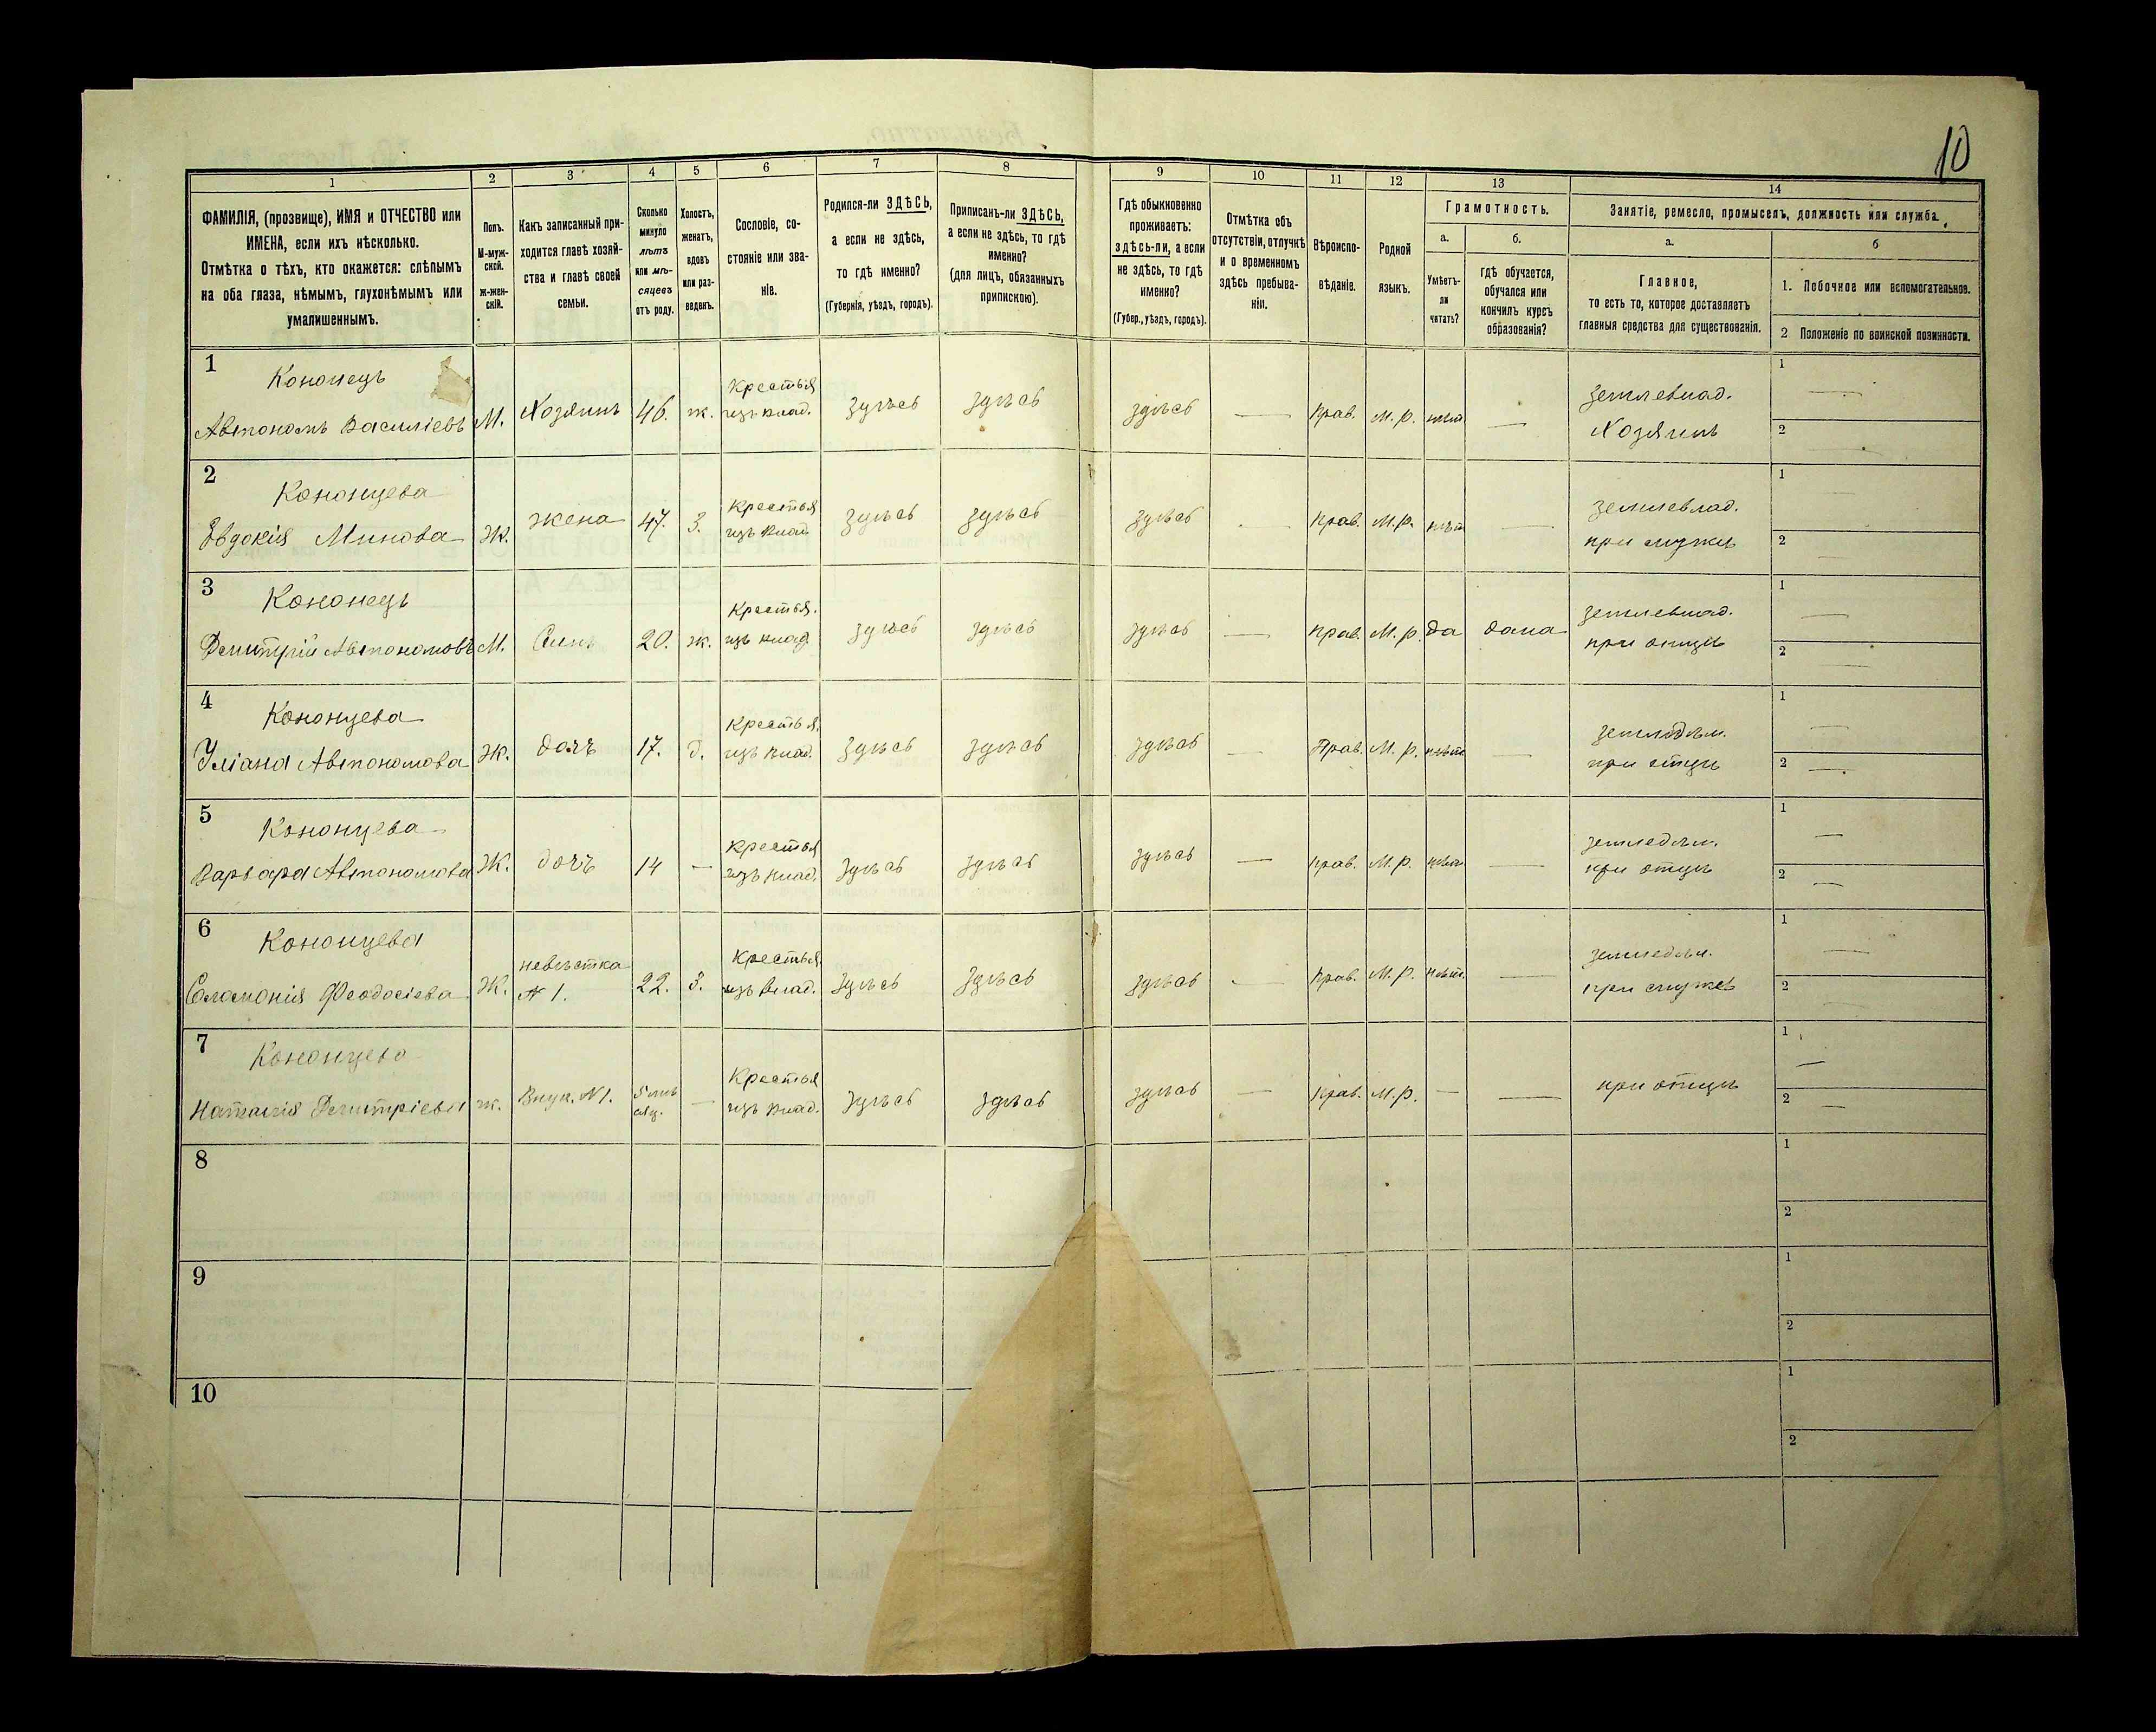 10
1 2 3 4 5 6 7 8 9 10 11 12 13 14
ФАМИЛІЯ, (прозвище), ИМЯ и ОТЧЕСТВО или
ИМЕНА, если ихъ нѣсколько.
Отмѣтка о тѣхъ, кто окажется: слѣпымъ
на оба глаза, нѣмымъ, глухонѣмымъ или
умалишеннымъ.
Полъ.
М-муж-
ской.
ж-жен-
скій.
Какъ записанный при-
ходится главѣ хозяй-
ства и главѣ своей
семьи.
Сколько
минуло
лѣтъ
или мѣ-
сяцевъ
отъ роду.
Холостъ,
женатъ,
вдовъ
или раз-
веденъ.
Сословіе, со-
стояніе или зва-
ніе.
Родился-ли ЗДѢСЬ,
а если не здѣсь,
то гдѣ именно?
(Губернія, уѣздъ, городъ).
Приписанъ-ли ЗДѢСЬ,
а если не здѣсь, то гдѣ
именно?
(для лицъ, обязанныхъ
припискою).
Гдѣ обыкновенно
проживаетъ:
здѣсь-ли, а если
не здѣсь, то гдѣ
именно?
(Губер., уѣздъ, городъ).
Отмѣтка объ
отсутствіи, отлучкѣ
и о временномъ
здѣсь пребыва-
ніи.
Вѣроиспо-
вѣданіе.
Родной
языкъ.
Грамотность.
а.
Умѣетъ-
ли
читать?
б.
гдѣ обучается,
обучался или
кончилъ курсъ
образованія?
Занятіе, ремесло, промыселъ, должность или служба.
а.
Главное,
то есть то, которое доставляетъ
главныя средства для существованія.
б
1. Побочное или вспомогательное.
2 Положеніе по воинской повинности.
1
Кононецъ
Автономъ Василіевъ
М. Хозяинъ 46. ж.
Крестья
изъ влад.
здѣсь здѣсь здѣсь — Прав. М. р. нѣт —
землевлад.
Хозяинъ
1 —
2 —
2
Кононцева
Евдокія Минова
Ж. жена 47. З.
Крестья
изъ влад
здѣсь здѣсь здѣсь — Прав. М. р. нѣт —
землевлад.
при мужѣ
1 —
2 —
3
Кононецъ
Димитрій Автономовъ
М. Сынъ 20. ж.
Крестья.
изъ влад
здѣсь здѣсь здѣсь — Прав. М. р. да дома
землевлад.
при отцѣ
1 —
2 —
4
Кононцева
Уліана Автономова
Ж. дочь 17. д.
Крестья.
изъ влад.
здѣсь здѣсь здѣсь — Прав. М. р. нѣт —
земледѣл.
при отцѣ
1 —
2 —
5
Кононцева
Варвара Автономова
Ж. дочь 14 —
Крестья
изъ влад.
здѣсь здѣсь здѣсь — Прав. М. р. нѣт. —
земледѣл.
при отцѣ
1 —
2 —
6
Кононцева
Соломонія Феодосіева
Ж.
невѣстка
№ 1.
22. З.
Крестья.
изъ влад.
здѣсь здѣсь здѣсь — Прав. М. р. нѣт. —
земледѣл.
при мужѣ
1 —
2 —
7
Кононцева
Наталія Димитріева
ж. Внук. №1.
5 мѣ
сяц.
—
Крестья
изъ влад.
здѣсь здѣсь здѣсь — Прав. М. р. — —
при отцѣ
1 —
2 —
8
1
2
9
1
2
10
1
2